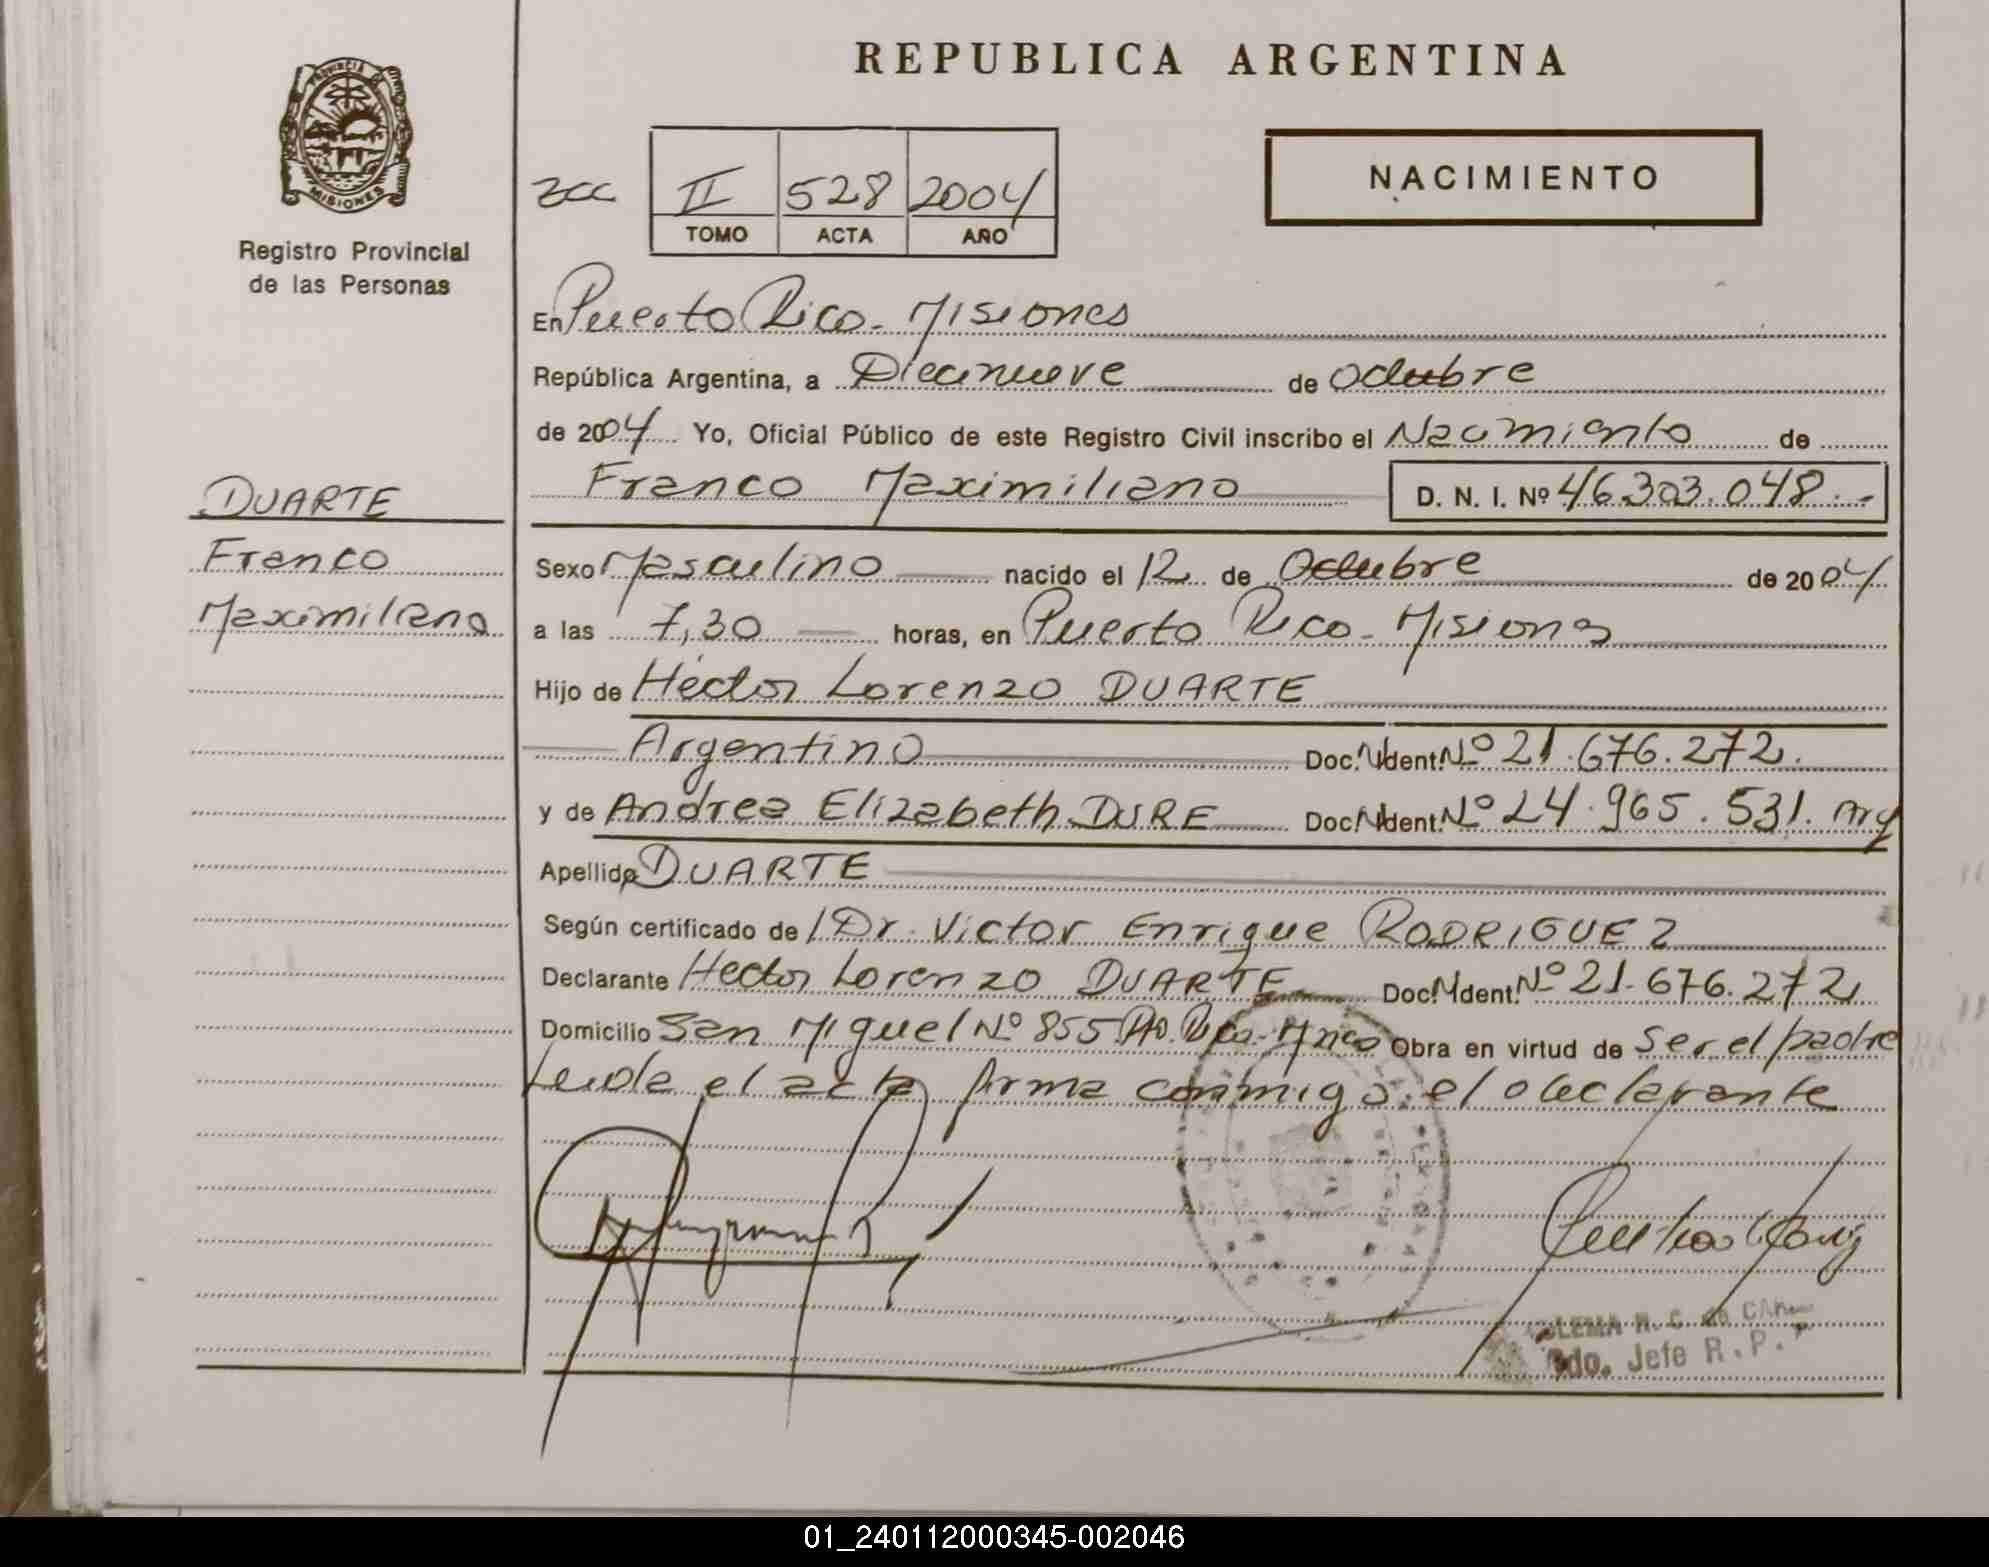 REPUBLICA ARGENTINA
PROVINCIA DE
MISIONES
Registro Provincial
de las Personas
NACIMIENTO
II 528 2004
TOMO ACTA AÑO
En Puerto Rico - Misiones
República Argentina, a Diecinueve de Octubre
de 2004 Yo, Oficial Público de este Registro Civil inscribo el Nacimiento de
Franco Maximiliano D. N. I. Nº 46.303.048.-
DUARTE
Franco
Maximiliano
Sexo Masculino nacido el 12 de Octubre de 2004
a las 7,30 horas, en Puerto Rico - Misiones
Hijo de Héctor Lorenzo DUARTE
Argentino Doc. Ident. Nº 21.676.272.
y de Andrea Elizabeth DURE Doc. Ident. Nº 24.965.531. Arg
Apellido DUARTE
Según certificado de l Dr. Victor Enrique RODRIGUEZ
Declarante Hector Lorenzo DUARTE Doc. Ident. Nº 21.676.272
Domicilio San Miguel Nº 855 Pto. Rico - Mnes Obra en virtud de ser el padre
Leida el acta firma conmigo el declarante
R. C. de
Jefe R. P.
01_240112000345-002046